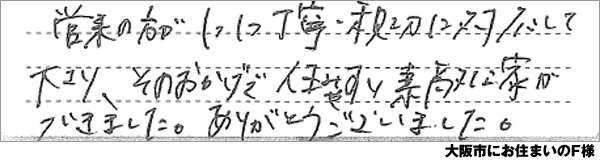 営業の方が1つ1つ丁寧・親切に対応して
下さり、そのおかげで住みやすい素敵な家が
できました。ありがとうございました。
大阪市にお住まいのF様